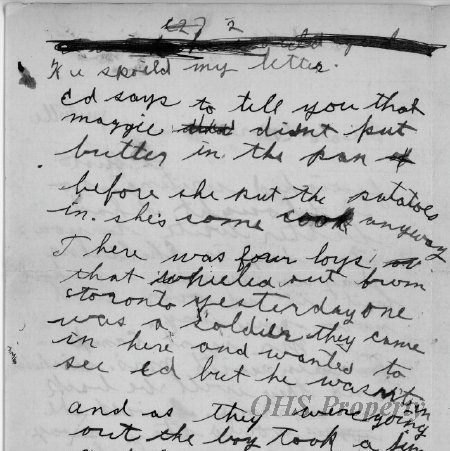 2
He spoild my letter.
Ed says to tell you that
maggie didnt put
butter in the pan
before she put the potatoes
in. she's some cook anyway
There was four boys
that wheeled out from
storonto yesterday one
was a soldier they came
in here and wanted to
see Ed but he wasnt in
and as they were going
out the boy took a
OHS Property